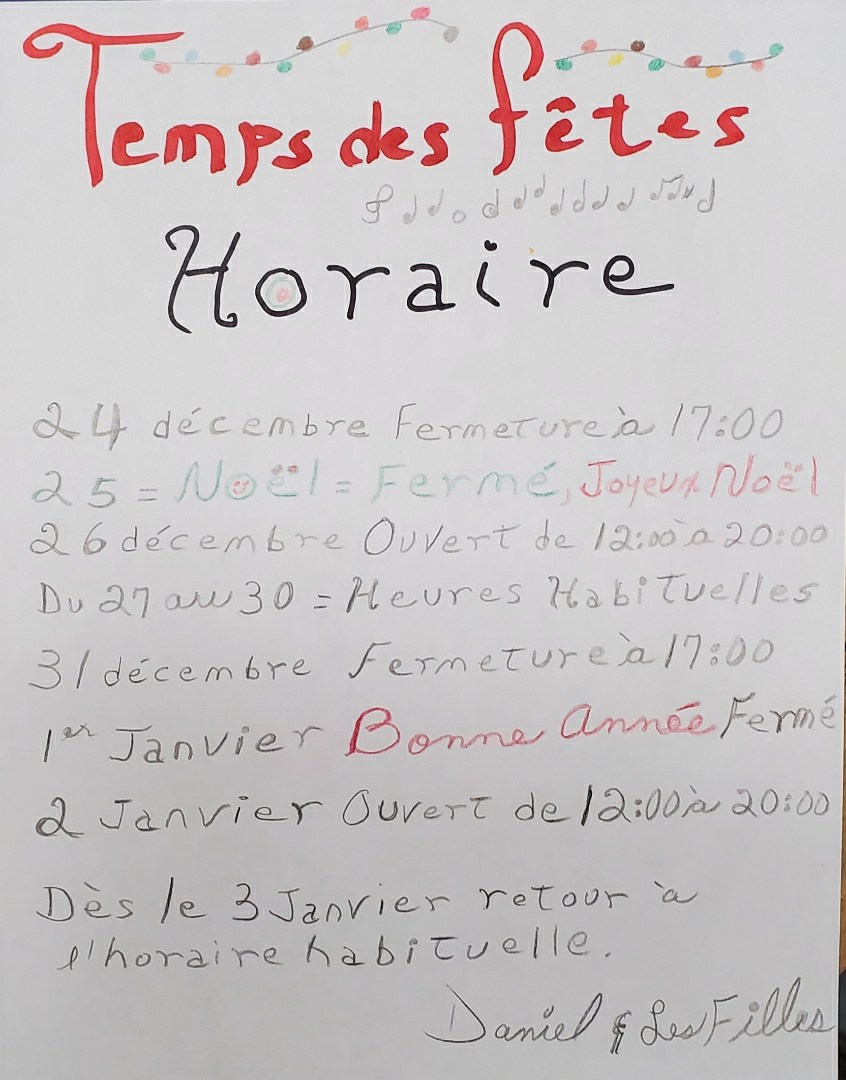 Temps des fêtes
Horaire
24 décembre Fermeture à 17:00
25 = Noël = Fermé, Joyeux Noël
26 décembre Ouvert de 12:00 à 20:00
Du 27 au 30 = Heures Habituelles
31 décembre Fermeture à 17:00
1er Janvier Bonne Année Fermé
2 Janvier Ouvert de 12:00 à 20:00
Dès le 3 Janvier retour à
l'horaire habituelle.
Daniel & Les Filles